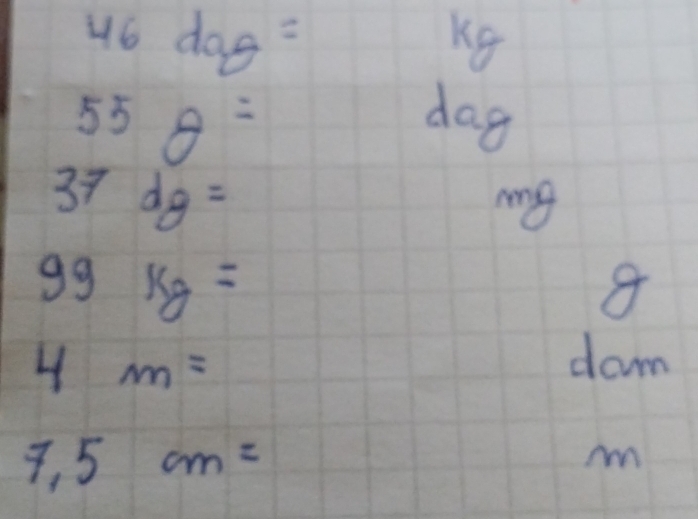 46 dag = kg
55 g = dag
37 dg = mg
99 kg = g
4 m = dam
7,5 cm = m